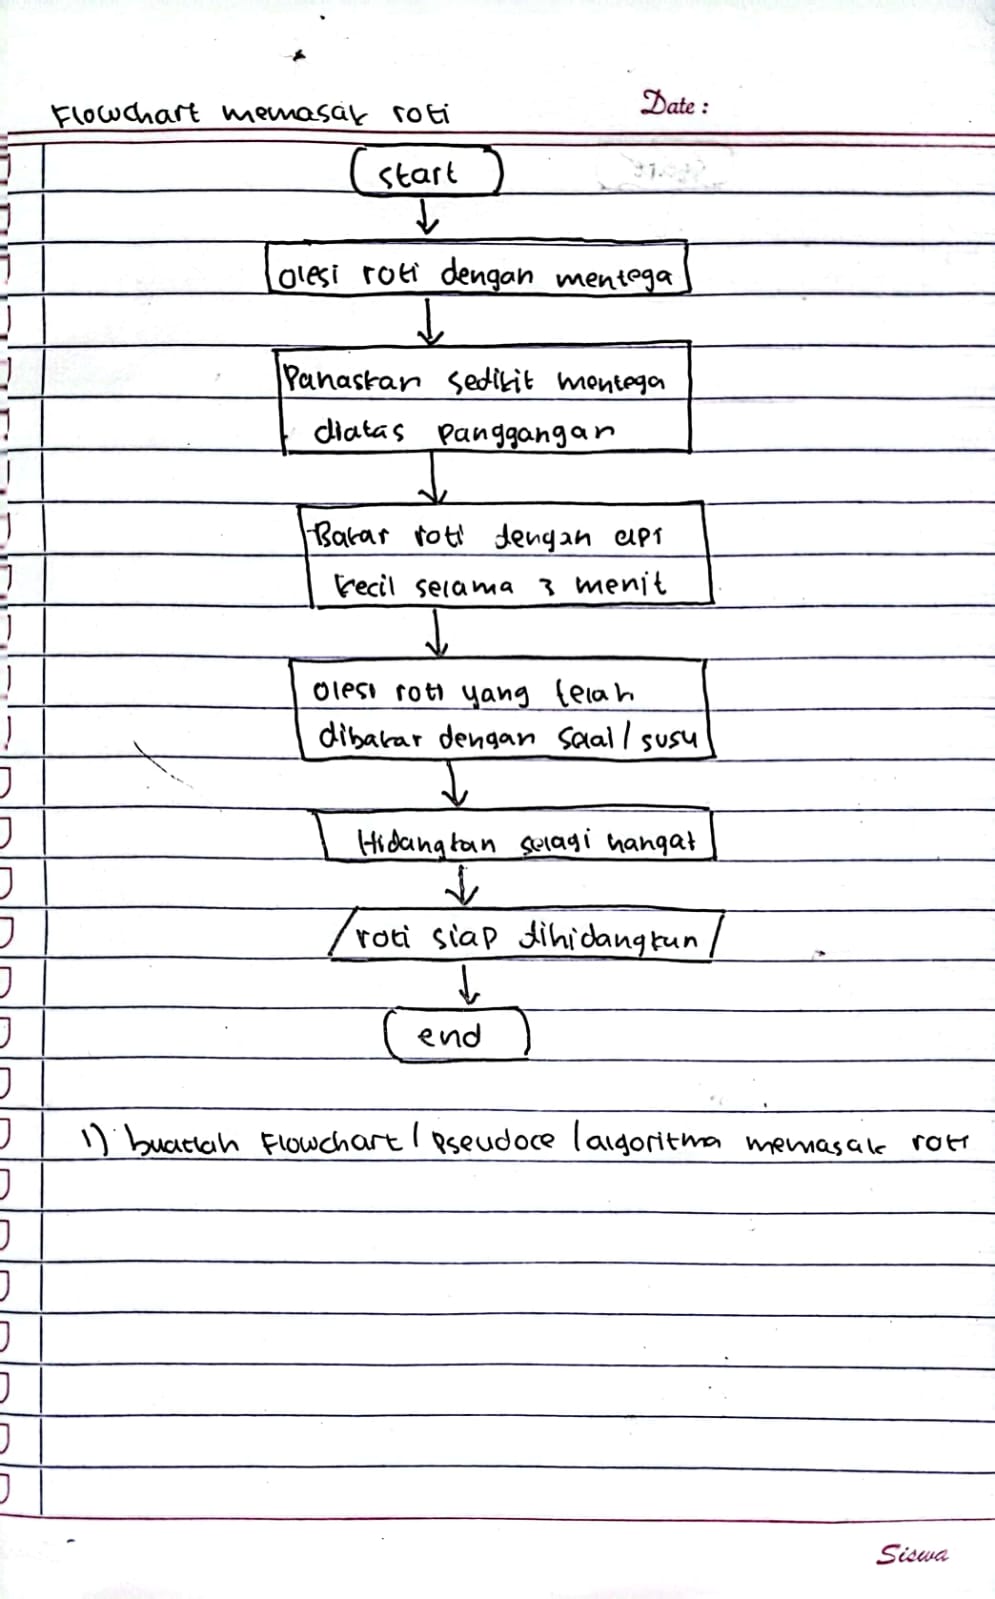 Flowchart memasak roti
Date :
start
olesi roti dengan mentega
Panaskan sedikit mentega
diatas panggangan
Bakar roti dengan api
kecil selama 3 menit
olesi roti yang telah
dibakar dengan selai / susu
Hidangkan selagi hangat
roti siap dihidangkan
end
1) buatlah Flowchart / Pseudoce / algoritma memasak roti
Siswa